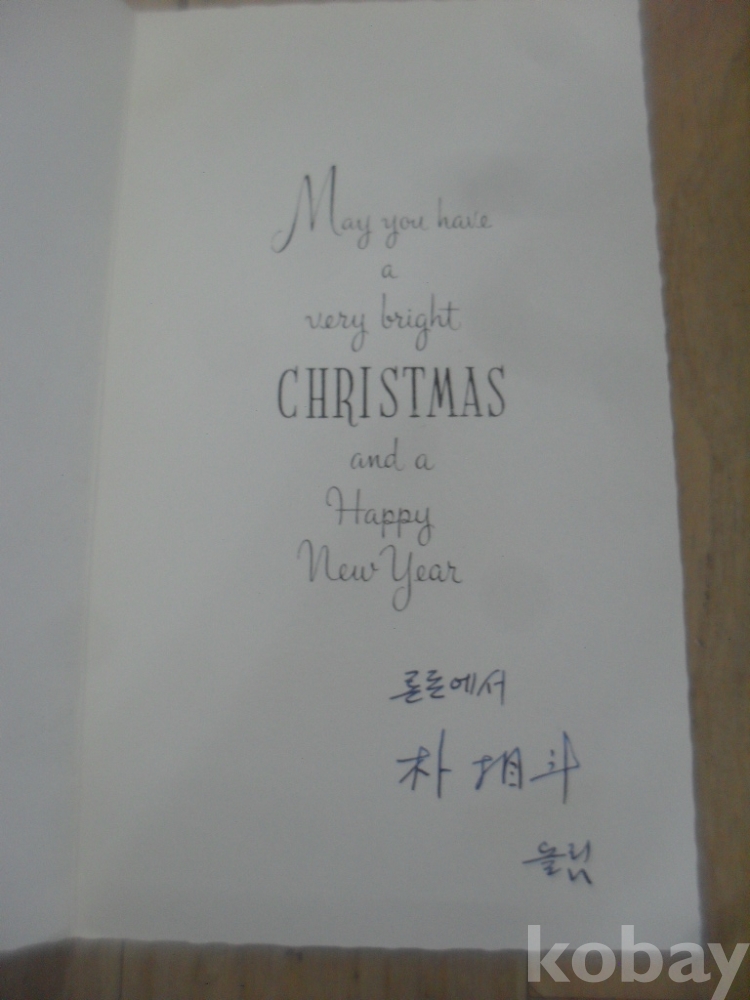 May you have
a
very bright
CHRISTMAS
and a
Happy
New Year
론돈에서
朴相斗
올림
kobay